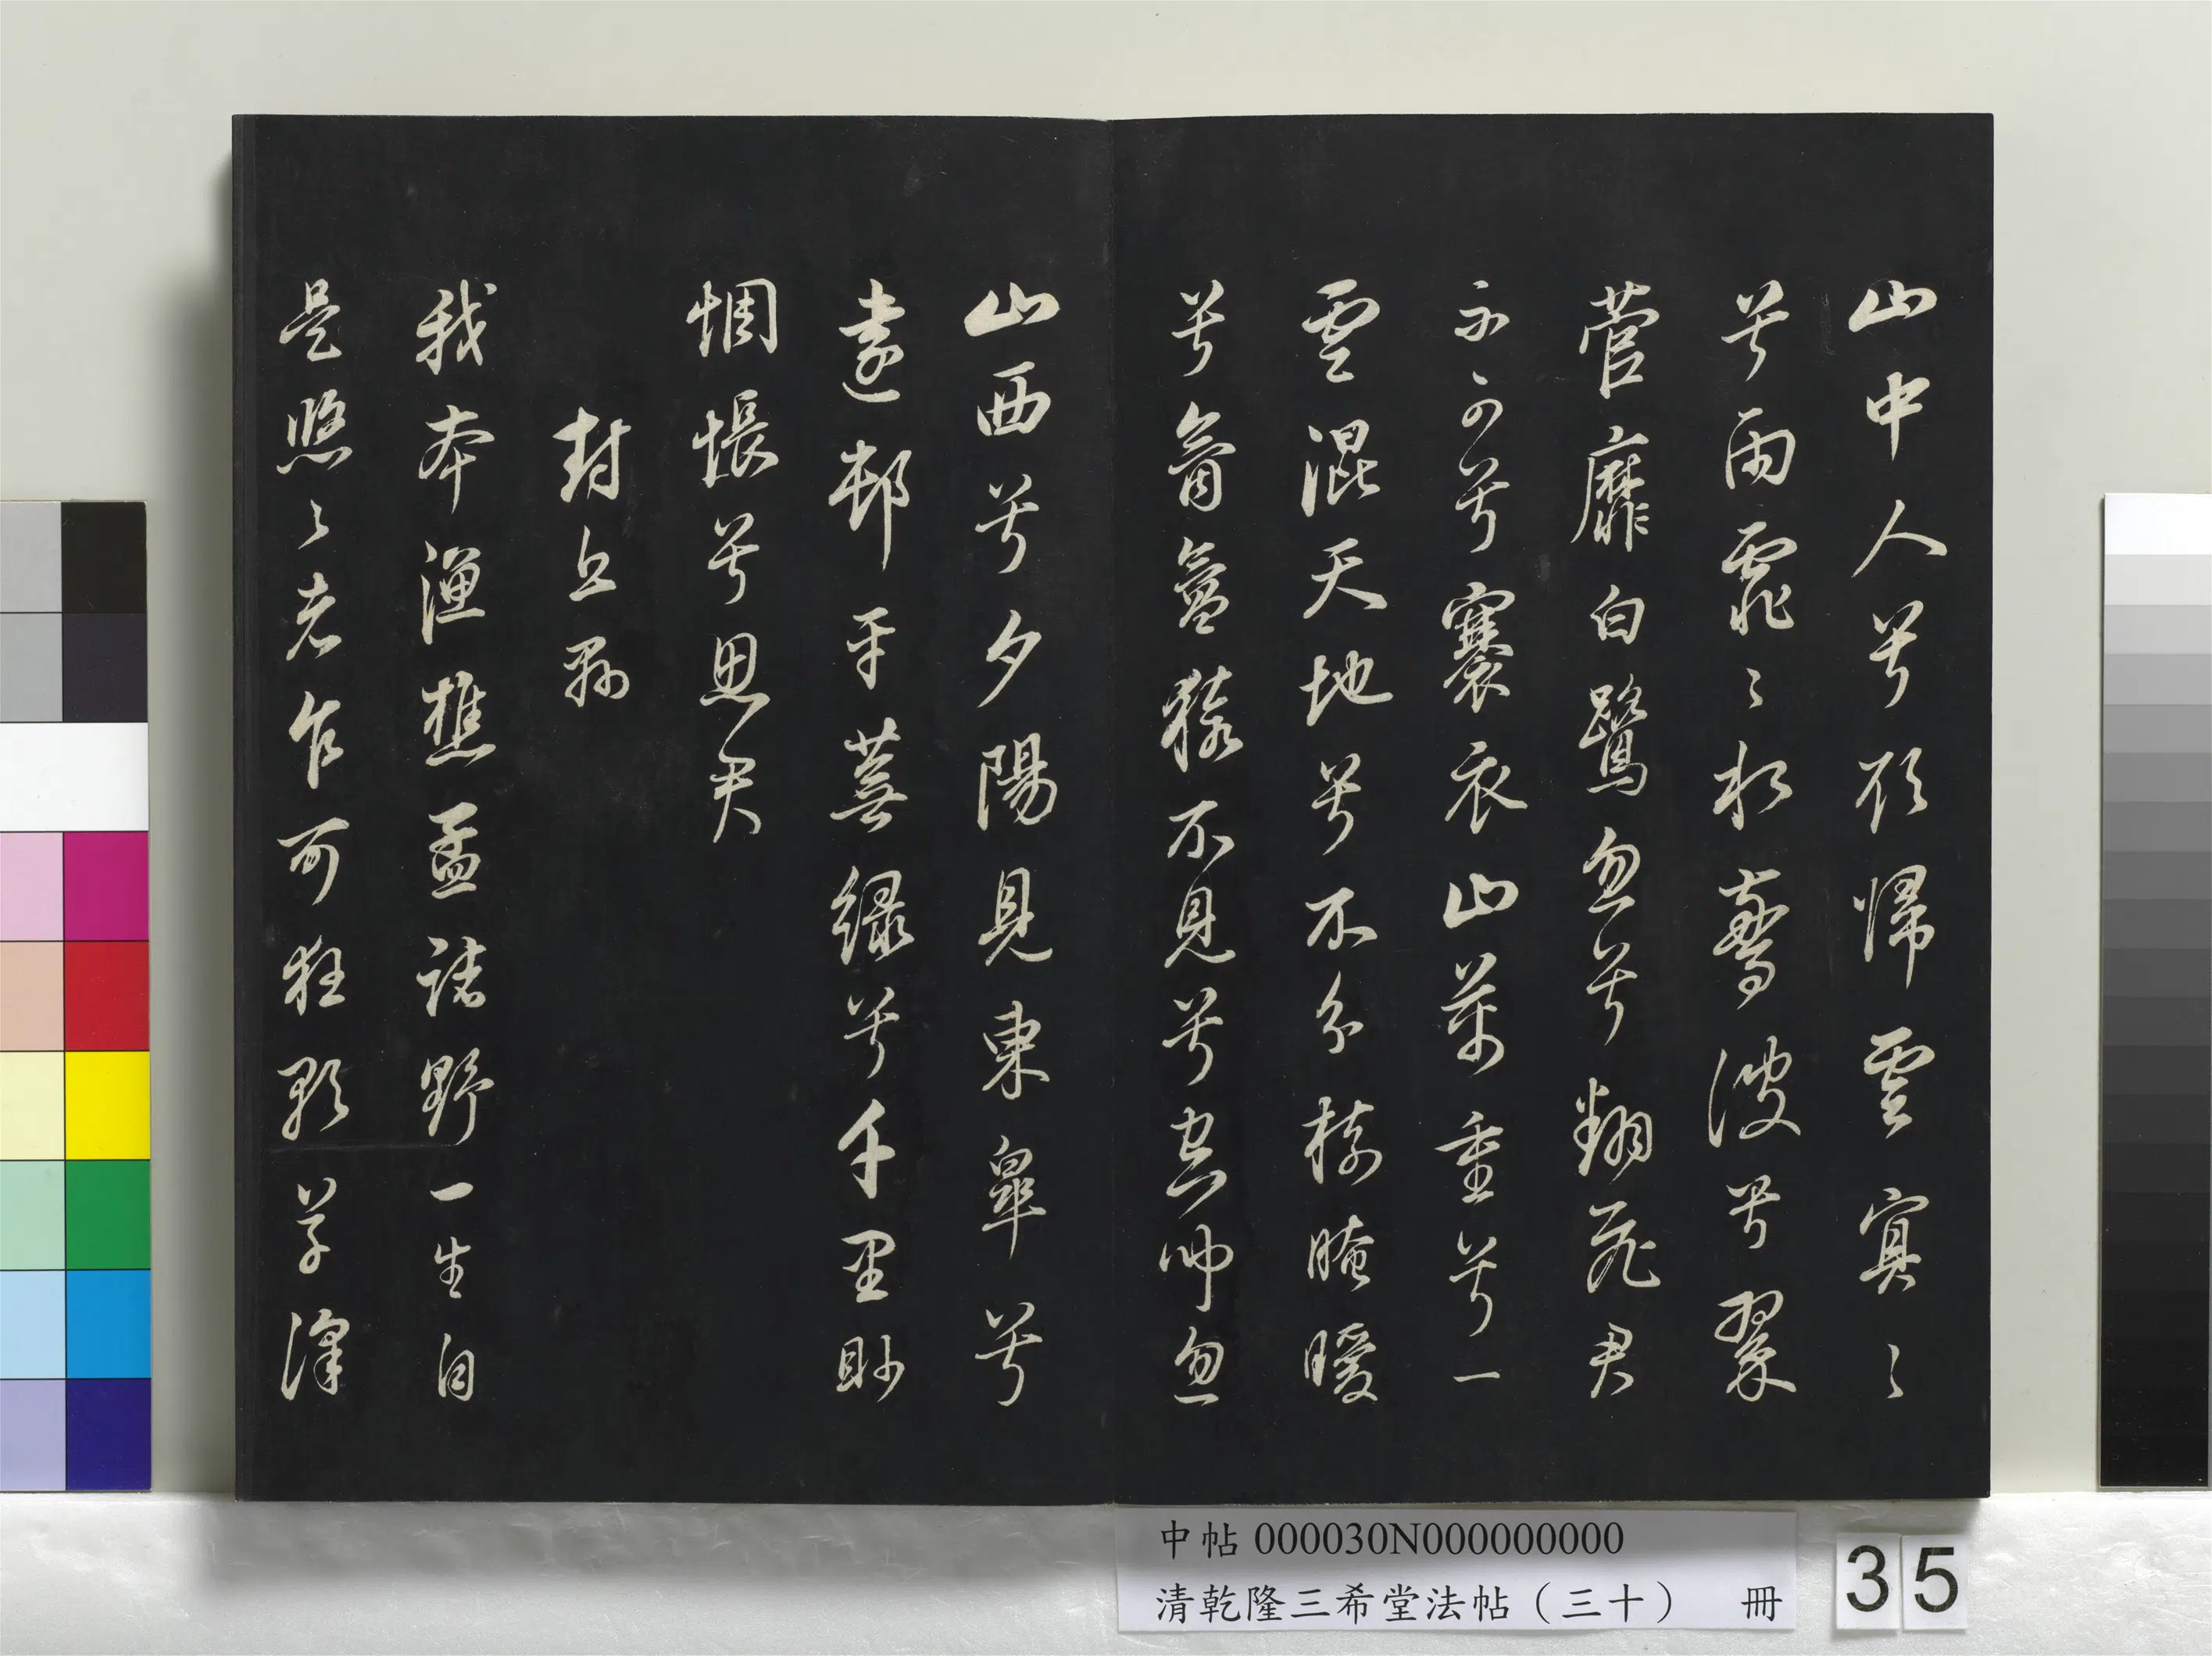 山中人兮欲歸雲冥〻
兮雨霏〻水驚波兮翠
菅靡白鷺忽兮翻飛君
不可兮褰衣山萬重兮一
雲混天地兮不分樹晻曖
兮氤氳猿不見兮空聞忽
山西兮夕陽見東皋兮
遠邨平蕪綠兮千里眇
惆悵兮思君
封丘縣
我本漁樵孟諸野一生自
是悠〻者乍可狂歌草澤
中帖 000030N000000000
清乾隆三希堂法帖（三十） 冊
35